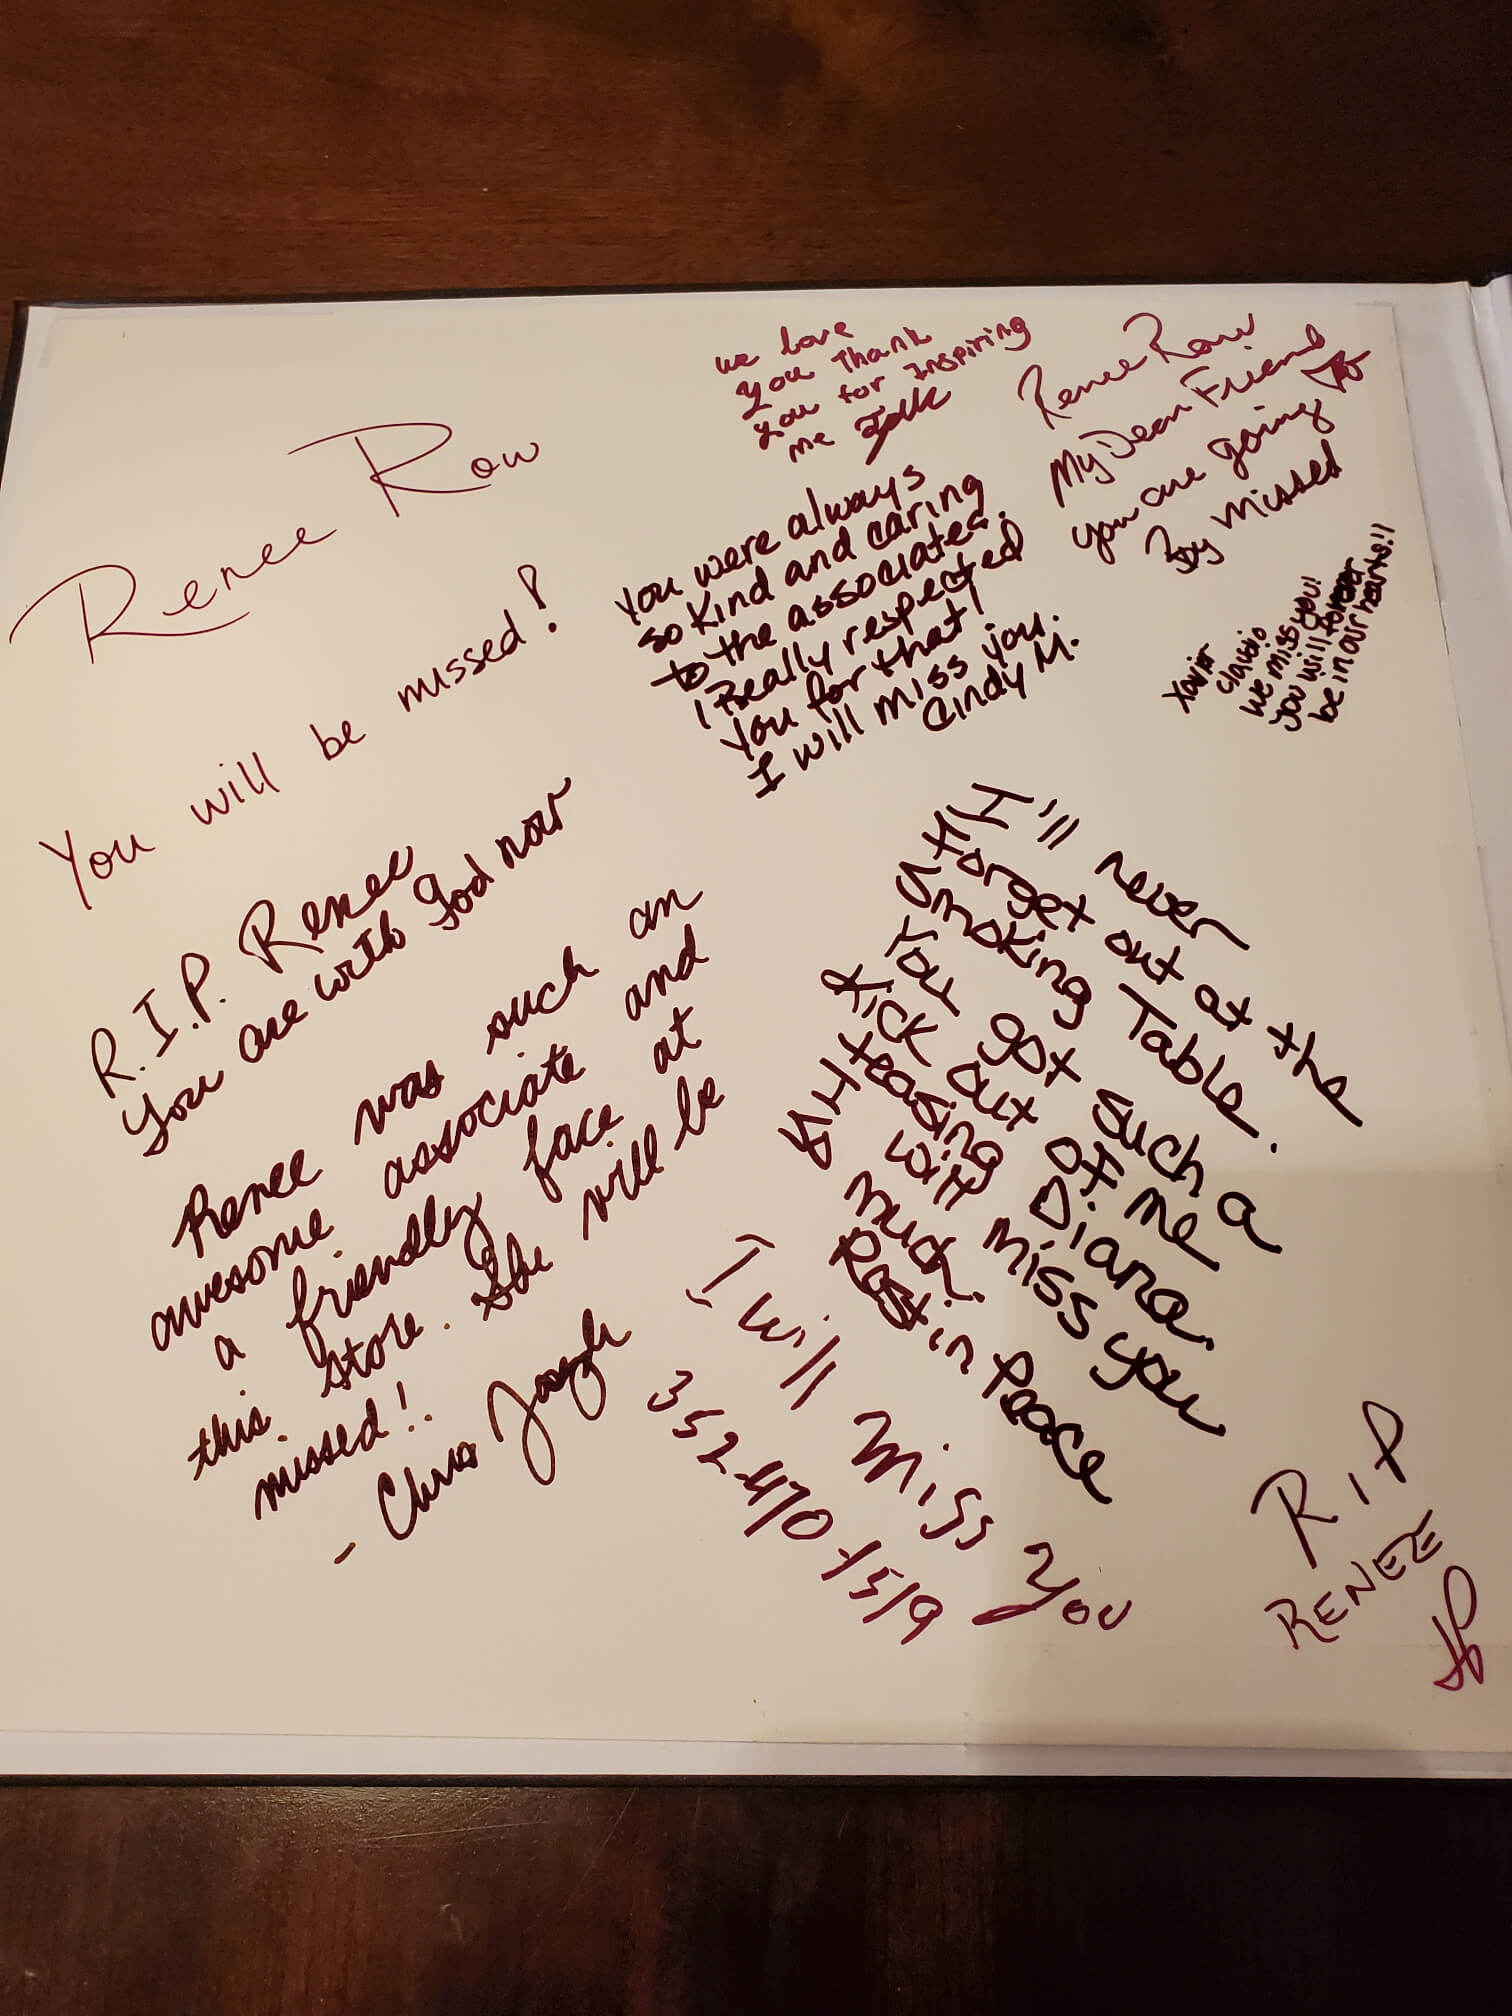 Renee Row
You will be missed!
R.I.P. Renee
You are with God now
Renee was such an
awesome associate and
a friendly face at
this store. She will be
missed!
- Chris Joseph
we love
you thank
you for inspiring
me
Renee Row
My Dear Friend
you are going
By Missed
You were always
so kind and caring
to the associates.
I Really respected
you for that!
I will miss you.
Cindy M.
Xavier
claudio
we miss you!
you will forever
be in our hearts!!
I'll never
forget out at the
Smoking Table.
You got such a
kick out of me
teasing Diana.
I will miss you
much.
Rest in Peace
I will miss you
352-470-1519
RIP
RENEE